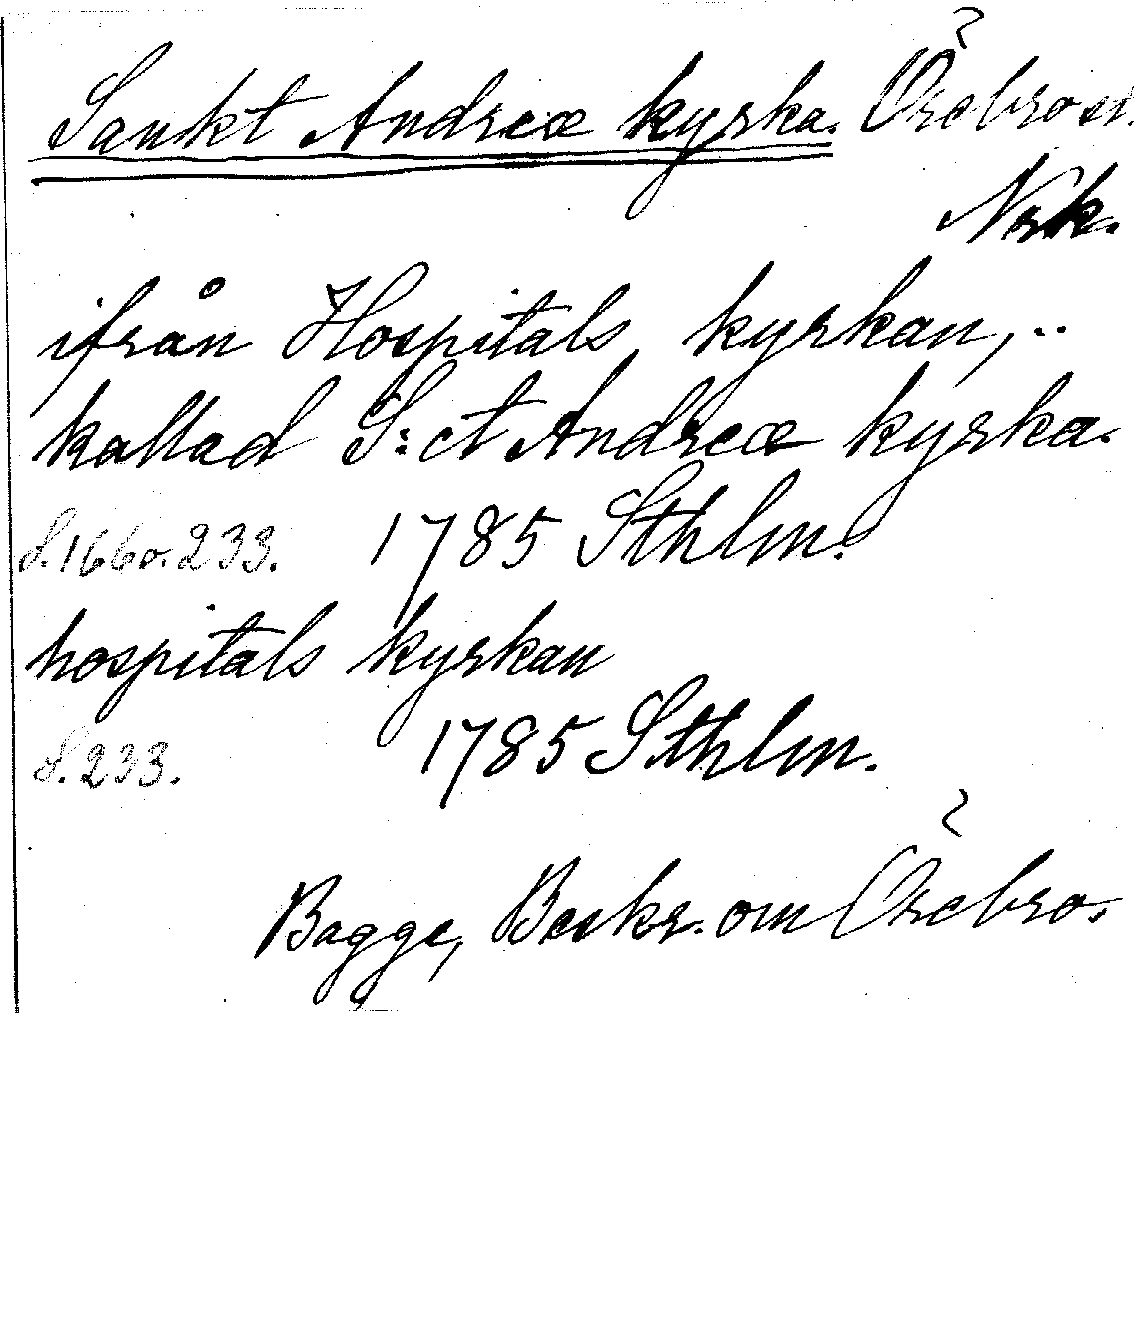 Sankt Andreæ kyrka. Örebro st.
Nrk.
ifrån Hospitals kyrkan,..
kallad S:ct Andreæ kyrka.
S. 166 o. 233. 1785 Sthlm.
hospitals kyrkan
S. 233. 1785 Sthlm.
Bagge, Beskr. om Örebro.